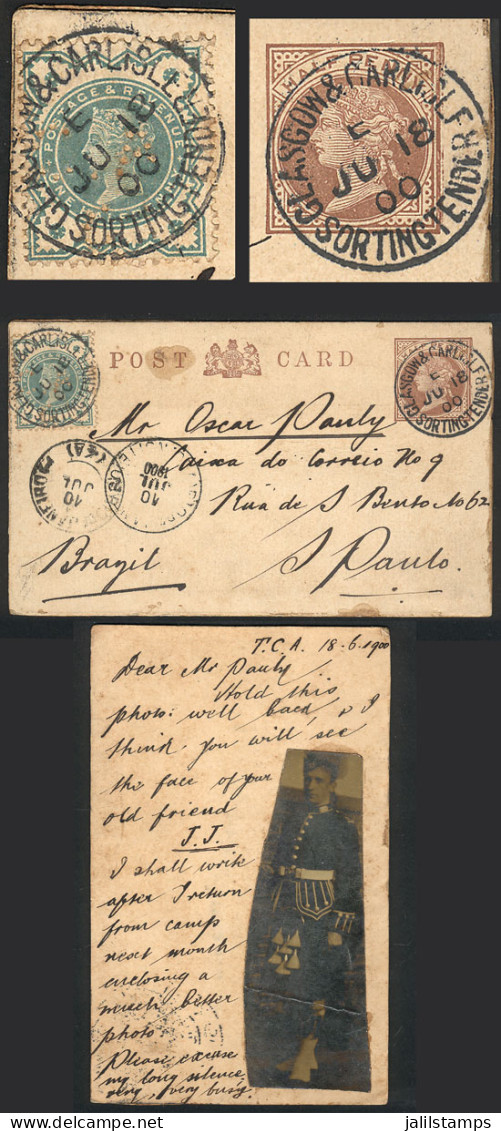 GLASGOW & CARLISLE
E
JU 18
00
SORTING TENDER
POSTAGE & REVENUE
HALF PENNY
GLASGOW & CARLISLE
E
JU 18
00
SORTING TENDER
POST CARD
GLASGOW & CARLISLE
E
JU 18
00
SORTING TENDER
GLASGOW & CARLISLE
E
JU 18
00
SORTING TENDER
Mr Oscar Pauly
Caixa do Correio No 9
Rua de S Bento No 62
S Paulo
Brazil
10
JUL
1900
10
JUL
T.C.A. 18-6-1900
Dear Mr Pauly
Hold this
photo: well back, & I
think you will see
the face of your
old friend
J.J.
I shall write
after I return
from camp
next month
enclosing a
much better
photo.
Please excuse
my long silence
very, very busy.
www.jalilstamps.com